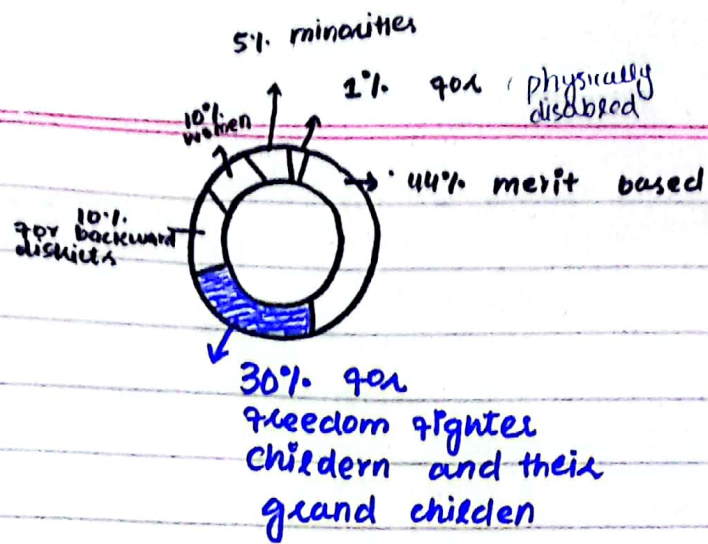 5% minorities
1% for physically
disabled
10%
women
44% merit based
10%
for backward
districts
30% for
freedom fighter
childern and their
grand childen